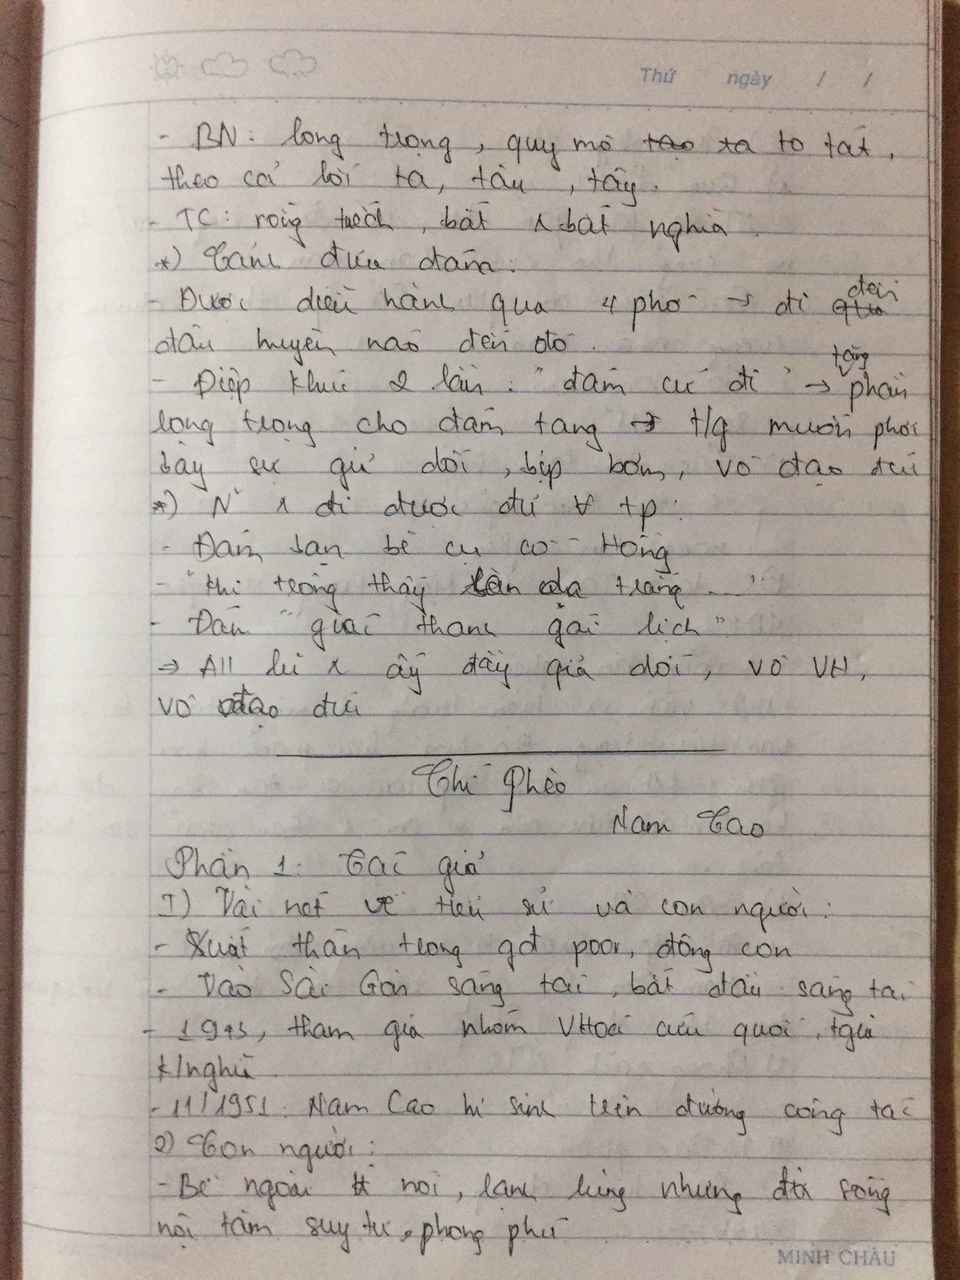 Thứ ngày / /
- BN: long trọng, quy mô to tát,
theo cả lối ta, tàu, tây.
- TC: rỗng tuếch, bất ʌ bất nghĩa
*) Cảnh đưa đám:
- Được diễu hành qua 4 phố → đi đến
đâu huyên náo đến đó.
- Điệp khúc 2 lần: "đám cứ đi" → tăng phần
long trọng cho đám tang → t/g muốn phơi
bày sự giả dối, bịp bợm, vô đạo đức
*) N² ʌ đi được đứ ∀ tp:
- Đám bạn bè cụ cố Hồng
- "khi trông thấy làn da trắng ...."
- Đám "giai thanh gái lịch"
→ All ʌ ấy đầy giả dối, vô VH,
vô đạo đức
Chí Phèo
Nam Cao
Phần 1: Tác giả
I) Vài nét về tiểu sử và con người:
- Xuất thân trong gđ poor, đông con
- Vào Sài Gòn sáng tác, bắt đầu sáng tác
- 1943, tham gia nhóm VHoá cứu quốc, tgia
k/nghĩa
- 11/1951: Nam Cao hi sinh trên đường công tác
2) Con người:
- Bề ngoài ít nói, lạnh lùng nhưng đời sống
nội tâm suy tư, phong phú
MINH CHÂU